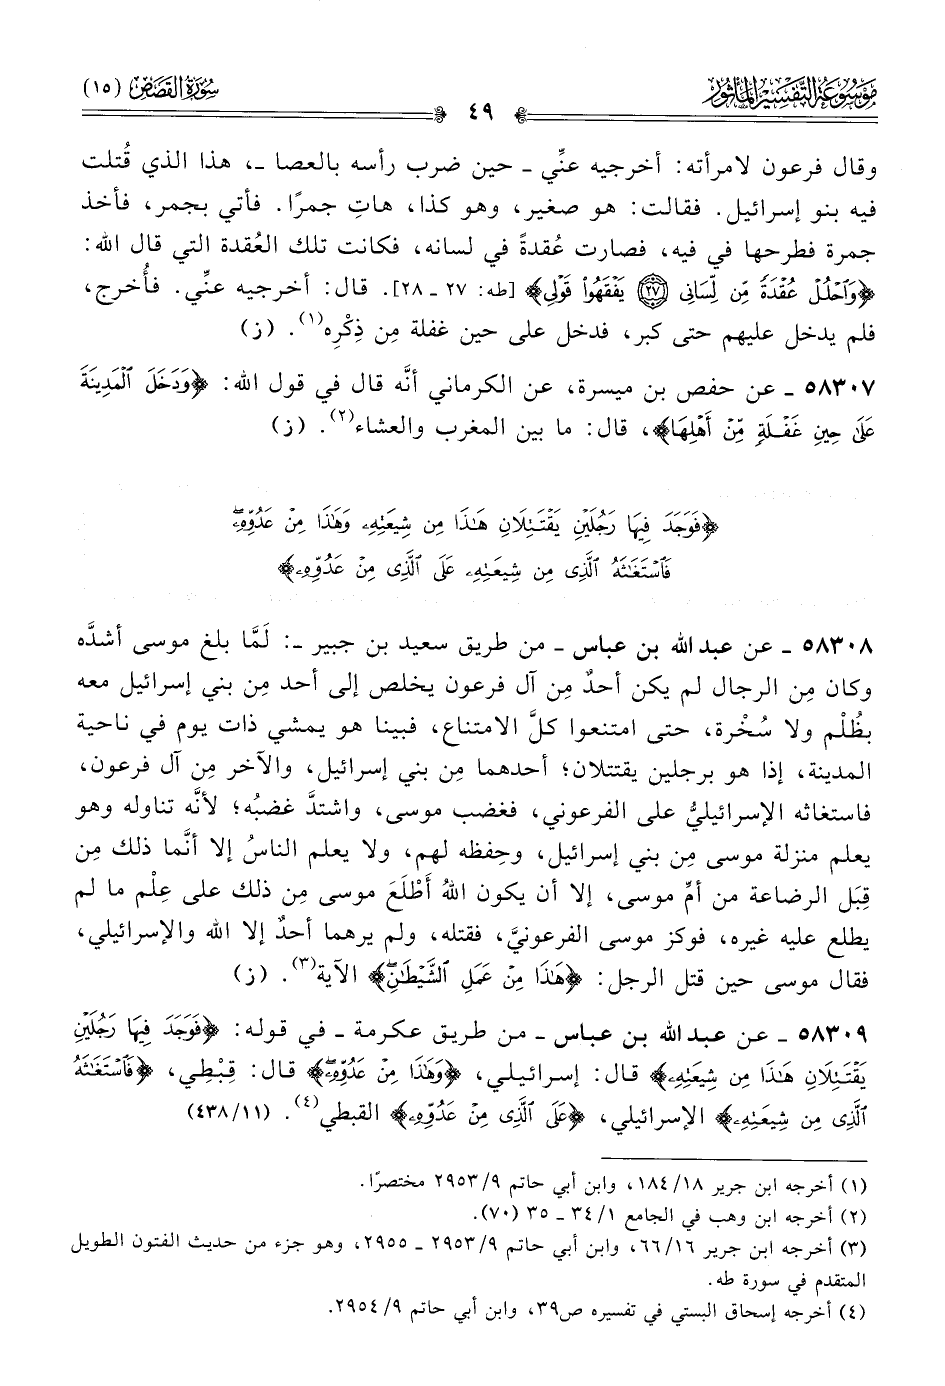 مَوْسُوعَةُ التَّفْسِيرِ المَأْثُورِ
٤٩
سُورَةُ القَصَصِ (١٥)
وقال فرعون لامرأته: أخرجيه عنِّي ـ حين ضرب رأسه بالعصا ـ، هذا الذي قُتلت
فيه بنو إسرائيل. فقالت: هو صغير، وهو كذا، هاتِ جمرًا. فأتي بجمر، فأخذ
جمرة فطرحها في فيه، فصارت عُقدةً في لسانه، فكانت تلك العُقدة التي قال الله:
﴿وَٱحۡلُلۡ عُقۡدَةٗ مِّن لِّسَانِي ۝٢٧ يَفۡقَهُواْ قَوۡلِي﴾ [طه: ٢٧ ـ ٢٨]. قال: أخرجيه عنِّي. فأُخرج،
فلم يدخل عليهم حتى كبر، فدخل على حين غفلة مِن ذِكْرِه(١). (ز)
٥٨٣٠٧ ـ عن حفص بن ميسرة، عن الكرماني أنَّه قال في قول الله: ﴿وَدَخَلَ ٱلۡمَدِينَةَ
عَلَىٰ حِينِ غَفۡلَةٖ مِّنۡ أَهۡلِهَا﴾، قال: ما بين المغرب والعشاء(٢). (ز)
﴿فَوَجَدَ فِيهَا رَجُلَيۡنِ يَقۡتَتِلَانِ هَٰذَا مِن شِيعَتِهِۦ وَهَٰذَا مِنۡ عَدُوِّهِۦۖ
فَٱسۡتَغَٰثَهُ ٱلَّذِي مِن شِيعَتِهِۦ عَلَى ٱلَّذِي مِنۡ عَدُوِّهِۦ﴾
٥٨٣٠٨ ـ عن عبد الله بن عباس ـ من طريق سعيد بن جبير ـ: لَمَّا بلغ موسى أشدَّه
وكان مِن الرجال لم يكن أحدٌ مِن آل فرعون يخلص إلى أحد مِن بني إسرائيل معه
بظُلْم ولا سُخْرة، حتى امتنعوا كلَّ الامتناع، فبينا هو يمشي ذات يوم في ناحية
المدينة، إذا هو برجلين يقتتلان؛ أحدهما مِن بني إسرائيل، والآخر مِن آل فرعون،
فاستغاثه الإسرائيليُّ على الفرعوني، فغضب موسى، واشتدَّ غضبُه؛ لأنَّه تناوله وهو
يعلم منزلة موسى مِن بني إسرائيل، وحِفظه لهم، ولا يعلم الناسُ إلا أنَّما ذلك مِن
قِبَل الرضاعة من أمِّ موسى، إلا أن يكون اللهُ أَطْلَعَ موسى مِن ذلك على عِلْم ما لم
يطلع عليه غيره، فوكز موسى الفرعونيَّ، فقتله، ولم يرهما أحدٌ إلا الله والإسرائيلي،
فقال موسى حين قتل الرجل: ﴿هَٰذَا مِنۡ عَمَلِ ٱلشَّيۡطَٰنِۖ﴾ الآية(٣). (ز)
٥٨٣٠٩ ـ عن عبد الله بن عباس ـ من طريق عكرمة ـ في قوله: ﴿فَوَجَدَ فِيهَا رَجُلَيۡنِ
يَقۡتَتِلَانِ هَٰذَا مِن شِيعَتِهِۦ﴾ قال: إسرائيلي، ﴿وَهَٰذَا مِنۡ عَدُوِّهِۦۖ﴾ قال: قِبْطِي، ﴿فَٱسۡتَغَٰثَهُ
ٱلَّذِي مِن شِيعَتِهِۦ﴾ الإسرائيلي، ﴿عَلَى ٱلَّذِي مِنۡ عَدُوِّهِۦ﴾ القبطي(٤). (٤٣٨/١١)
(١) أخرجه ابن جرير ١٨/ ١٨٤، وابن أبي حاتم ٩/ ٢٩٥٣ مختصرًا.
(٢) أخرجه ابن وهب في الجامع ١/ ٣٤ ـ ٣٥ (٧٠).
(٣) أخرجه ابن جرير ١٦/ ٦٦، وابن أبي حاتم ٩/ ٢٩٥٣ ـ ٢٩٥٥، وهو جزء من حديث الفتون الطويل
المتقدم في سورة طه.
(٤) أخرجه إسحاق البستي في تفسيره ص٣٩، وابن أبي حاتم ٩/ ٢٩٥٤.